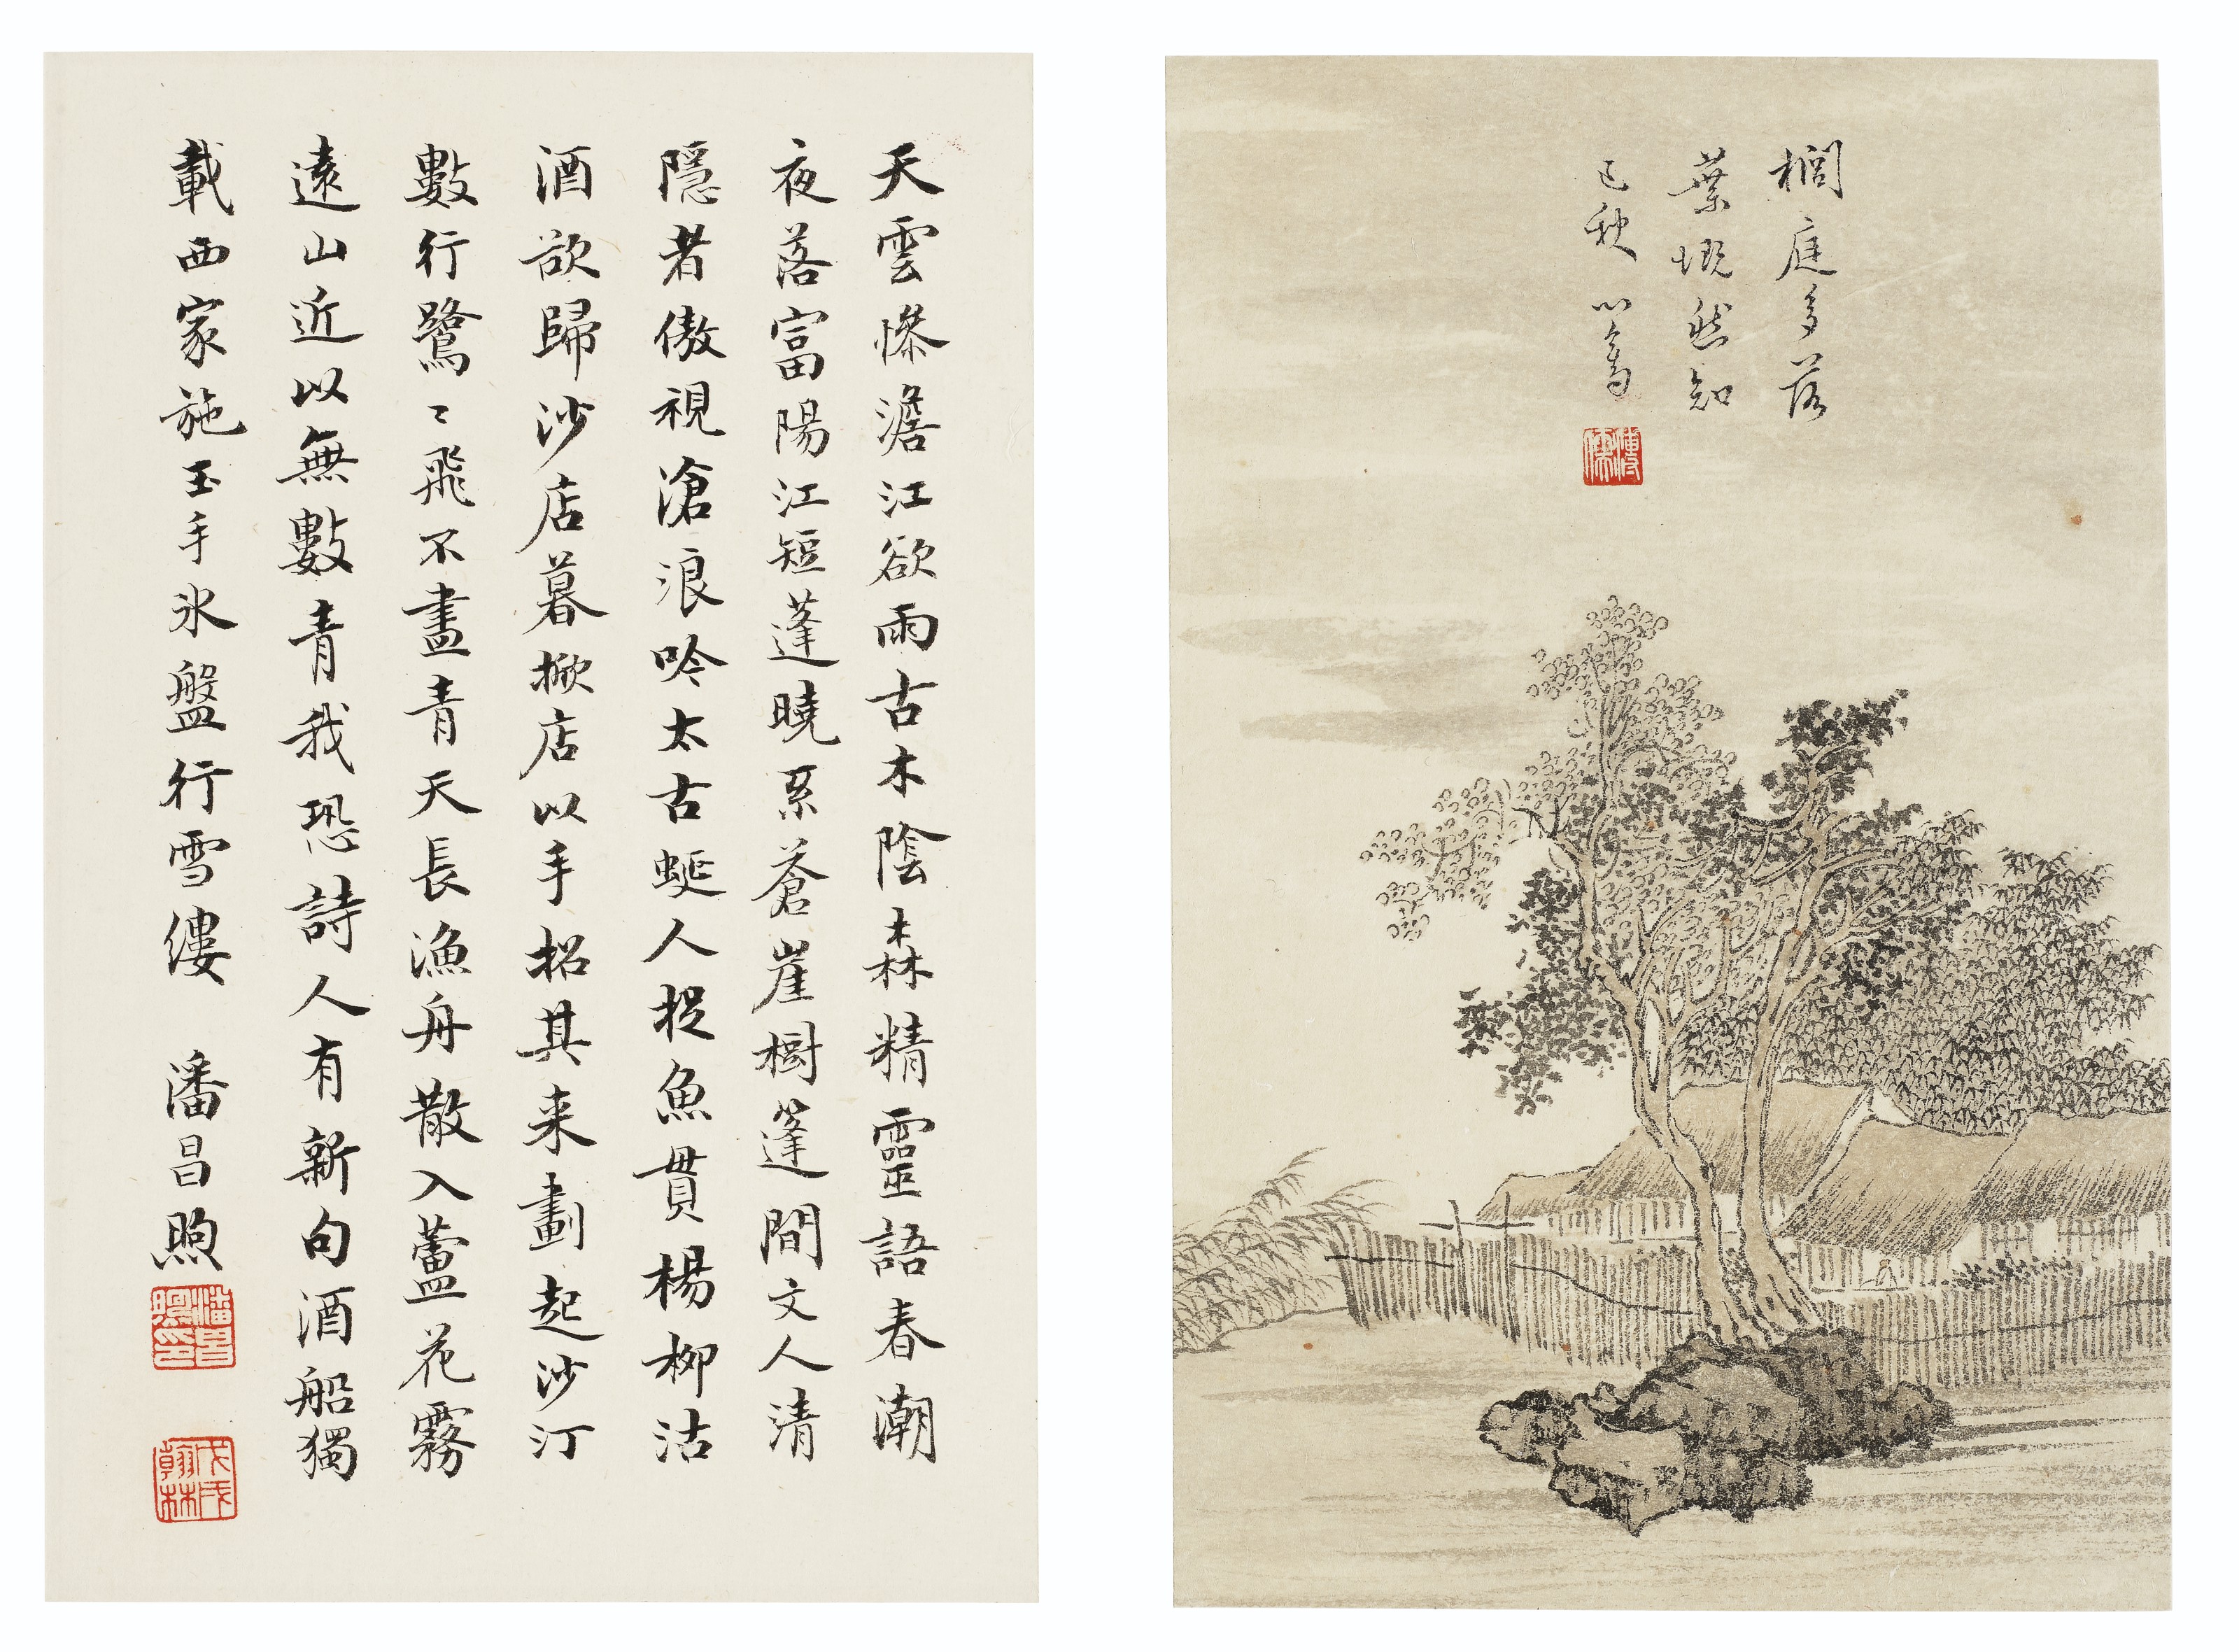 櫚庭多落
葉慨然知
已秋 心畬
溥儒
天雲慘澹江欲雨古木陰森精靈語春潮
夜落富陽江短蓬曉系蒼崖樹篷間文人清
隱者傲視滄浪吟太古蜒人捉魚貫楊柳沽
酒欲歸沙店暮掀店以手招其来劃起沙汀
數行鷺〻飛不盡青天長漁舟散入蘆花霧
遠山近以無數青我恐詩人有新句酒船獨
載西家施玉手氷盤行雪縷 潘昌煦
潘昌煦印
戊戌翰林